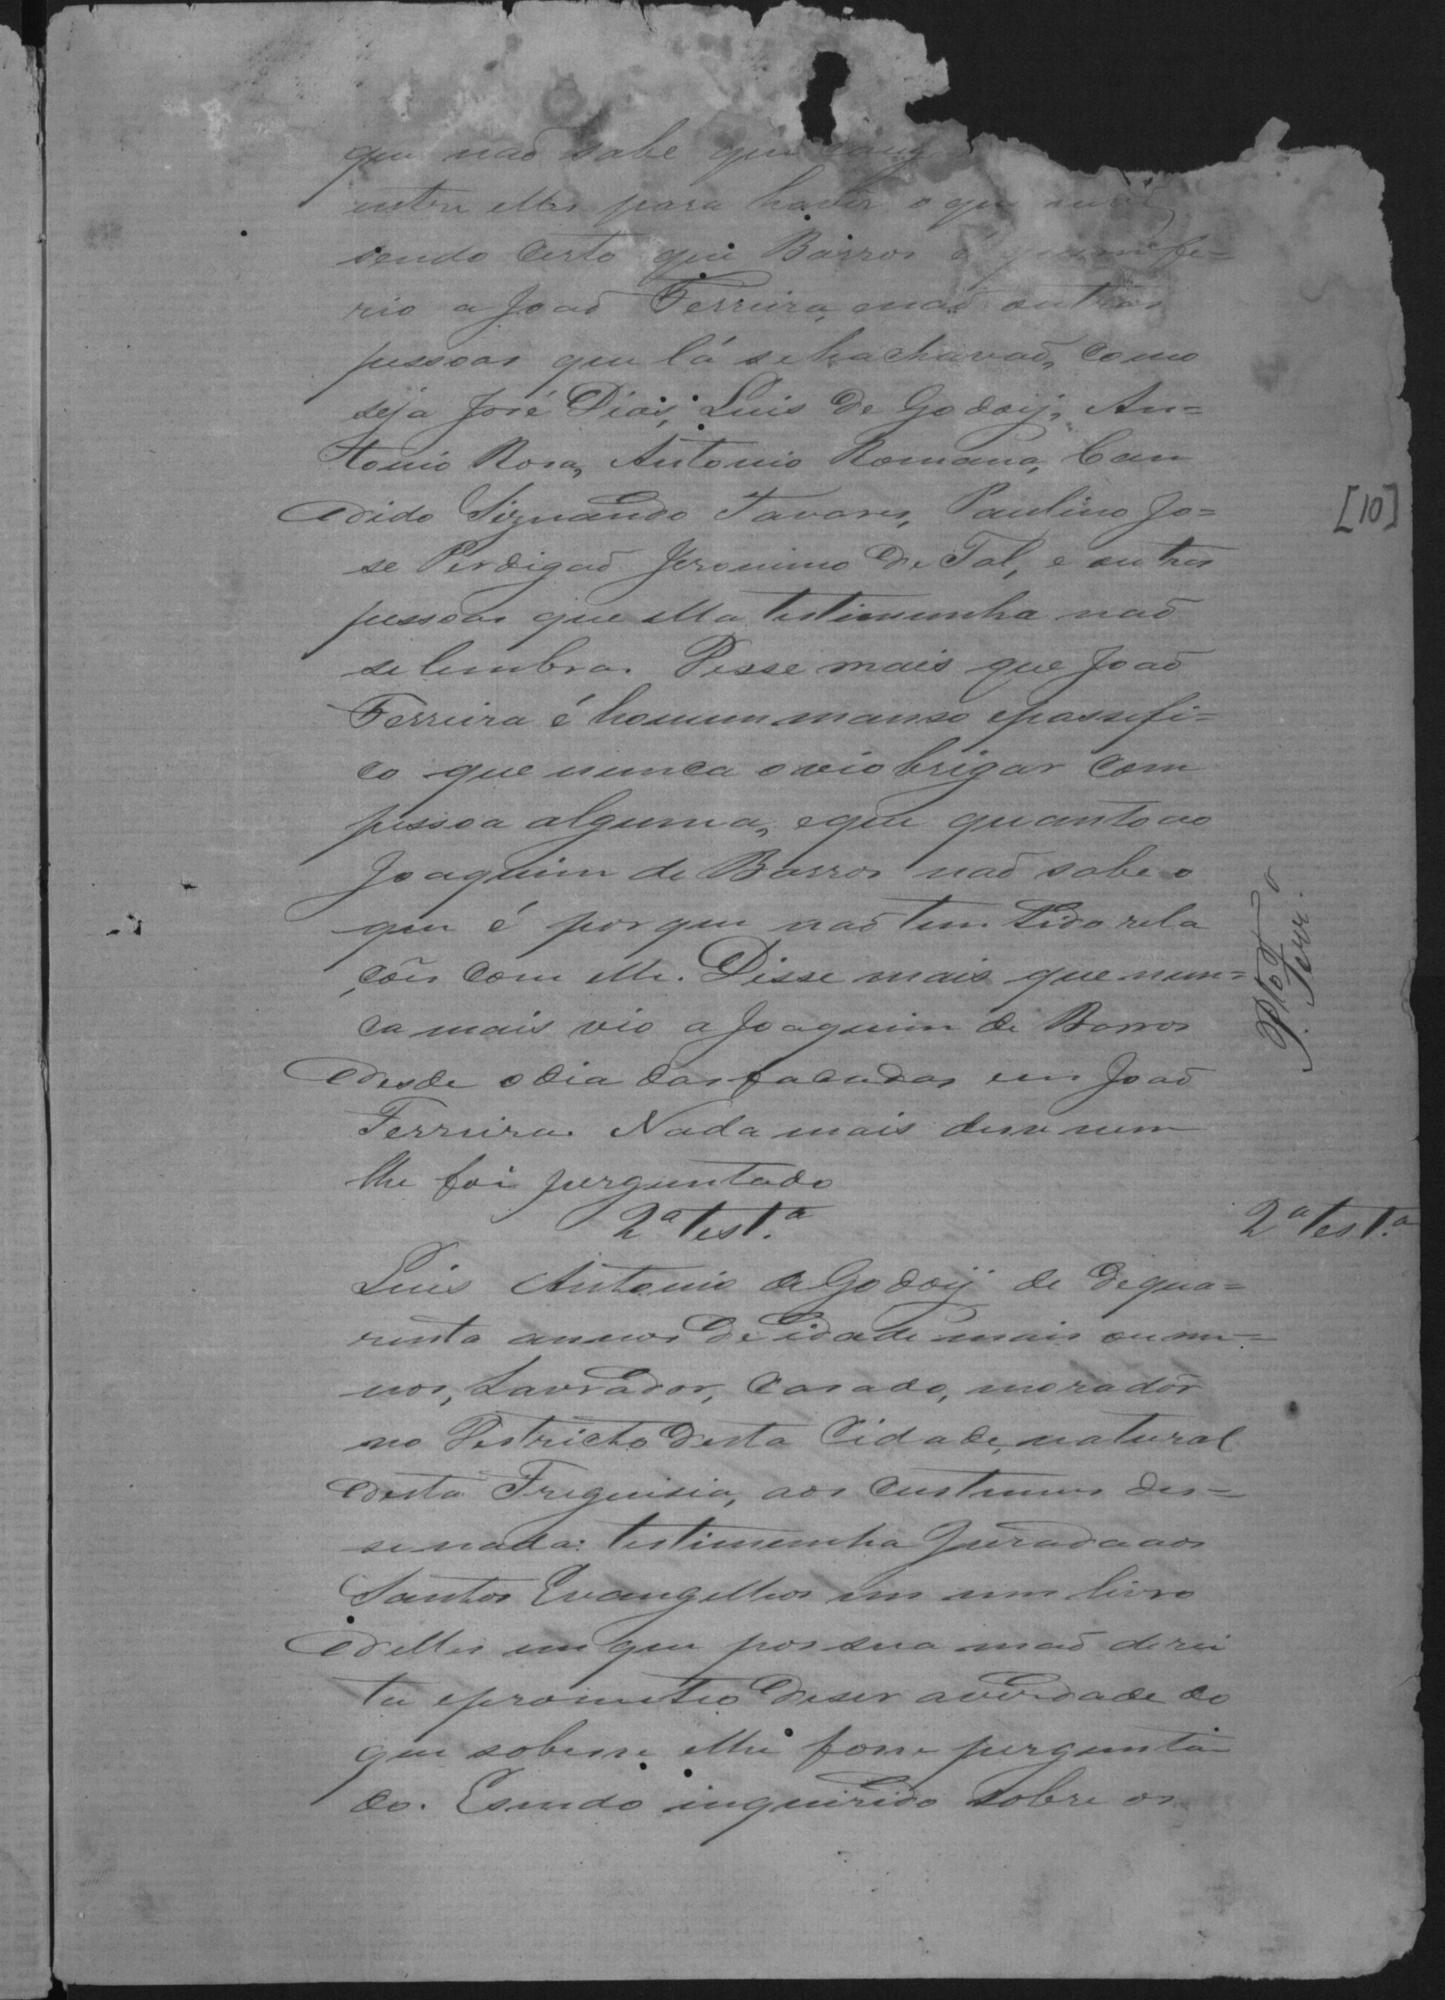 que não sabe que
entre elles para haver o que
sendo certo que Barros é quem fe=
rio a João Ferreira, e não outras
pessoas que lá se hachavão, como
seja José Dias, Luis de Godoij, An=
tonio Rosa, Antonio Romano, Can
dido Siznando Tavares, Paulino Jo=
se Perdigão Jeronimo de Tal, e outras
pessoas que ella testimunha não
se lembra. Disse mais que João
Ferreira é homem manso e passifi=
co que nunca o vio brigar com
pessoa alguma, e que quanto ao
Joaquim de Barros não sabe o
que é porque não tem tido rela
ções com elle. Disse mais que nun=
ca mais vio a Joaquim de Barros
desde o dia das facadas em João
Ferreira. Nada mais disse nem
lhe foi perguntado
2ª test.ª
2ª test.ª
[10]
Luis Antonio de Godoij de de qua=
renta annos de idade mais ou me=
nos, Lavrador, casado, morador
no Destricto desta Cidade, natural
desta Freguisia, aos custumes dis=
se nada: testimunha Jurada aos
Santos Evangelhos em um livro
delles em que pos sua mão derei
ta e prometeo diser a verdade do
que sobesse e lhe fosse pergunta
do. E sendo inquirido sobre os